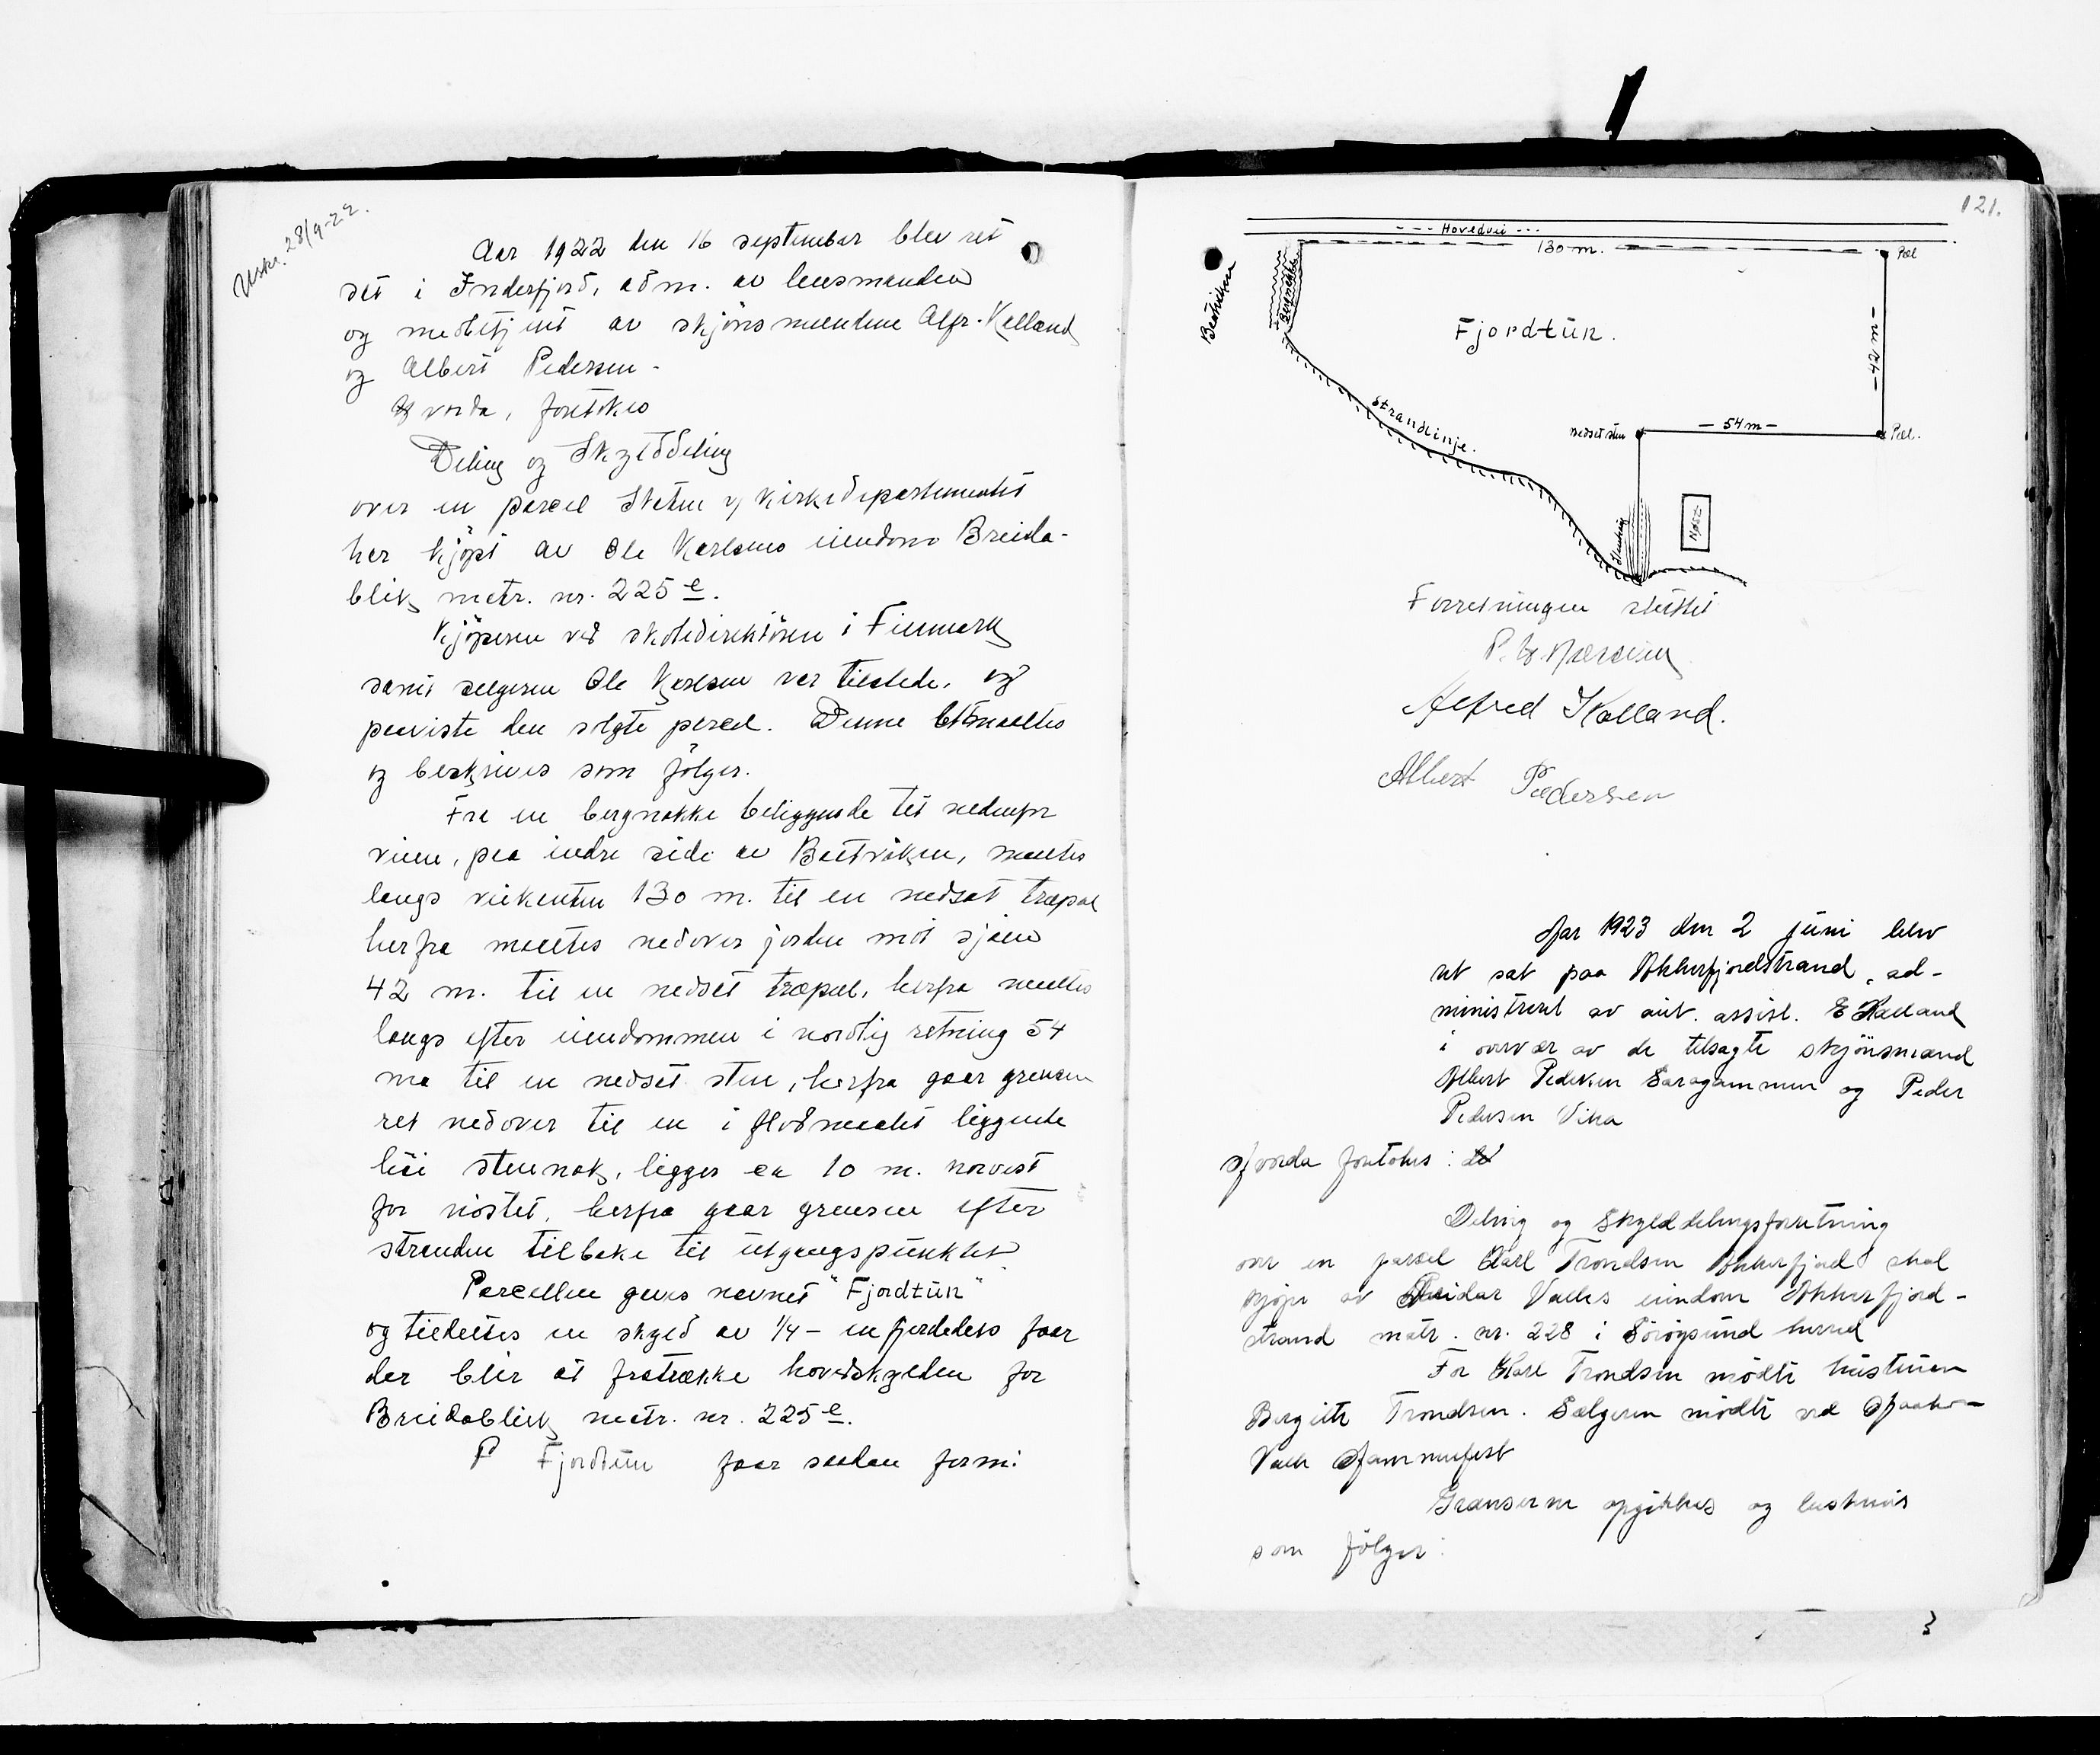 Utskr. 28/9-22.
Aar 1922 den 16 september blev ret
sat i Inderfjord, adm. av lensmanden
og medbetjent av skjønsmændene Alfr. Kelland
og Albert Pedersen -
Hvorda, foretokes
Deling og Skylddeling
over en parcel Staten v/ Kirkedepartementet
har kjöpt av Ole Karlsens eiendom Breida-
blik matr. nr. 225 e.
Kjöperen ved skoledirektören i Finmark
samt selgeren Ole Karlsen var tilstede, og
paaviste den solgte parcel. Denne
og beskrives som fölger.
Fra en bergnakke beliggende tæt nedenfor
veien, paa indre side av Baatviken, maaltes
langs veikanten 130 m. til en nedsat træpæl
herfra maaltes nedover jorden mot sjøen
42 m. til en nedsat træpæl, herfra maaltes
langs efter eiendommen i nordlig retning 54
m til en nedsat sten, herfra gaar grensen
ret nedover til en i flodmaalet liggende
liti stennak, ligger ca 10 m. norvest
for nöstet, herfra gaar grensen efter
stranden tilbake til utgangspunktet
Parcellen gives navnet "Fjordtun"
og tildeltes en skyld av 1/4 - en fjerdedels
der blir at fratrække hovedskylden for
Breidablik matr. nr. 225 e.
P Fjordtun faar saadan form:
121.
--- Hovedvei ---
130 m.
Pæl
Baatviken
Bergnakke
Fjordtun.
- 42 m -
Strandlinje.
nedsat sten
- 54 m -
Pæl.
Nöst
Forretningen sluttet
Alfred Kelland.
Albert Pedersen
Aar 1923 den 2 juni blev
ret sat paa Akkarfjordstrand, ad-
ministrert av aut. assist. E Kelland
i overvær av de tilsagte skjönsmænd
Albert Pedersen Saragammen og Peder
Pedersen Vika
Hvorda foretokes :
Deling og Skylddelingsforretning
over en parsel Karl Trondsen Akkarfjord skal
kjöpe av Reidar Valles eiendom Akkarfjord-
strand matr. nr. 228 i Söröysund herred
For Karl Trondsen mödte hustruen
Bergitte Trondsen. Sælgeren mödte ved Haaken
Valle Hammerfest
Grænserne opgikkes og beskrives
som fölger :